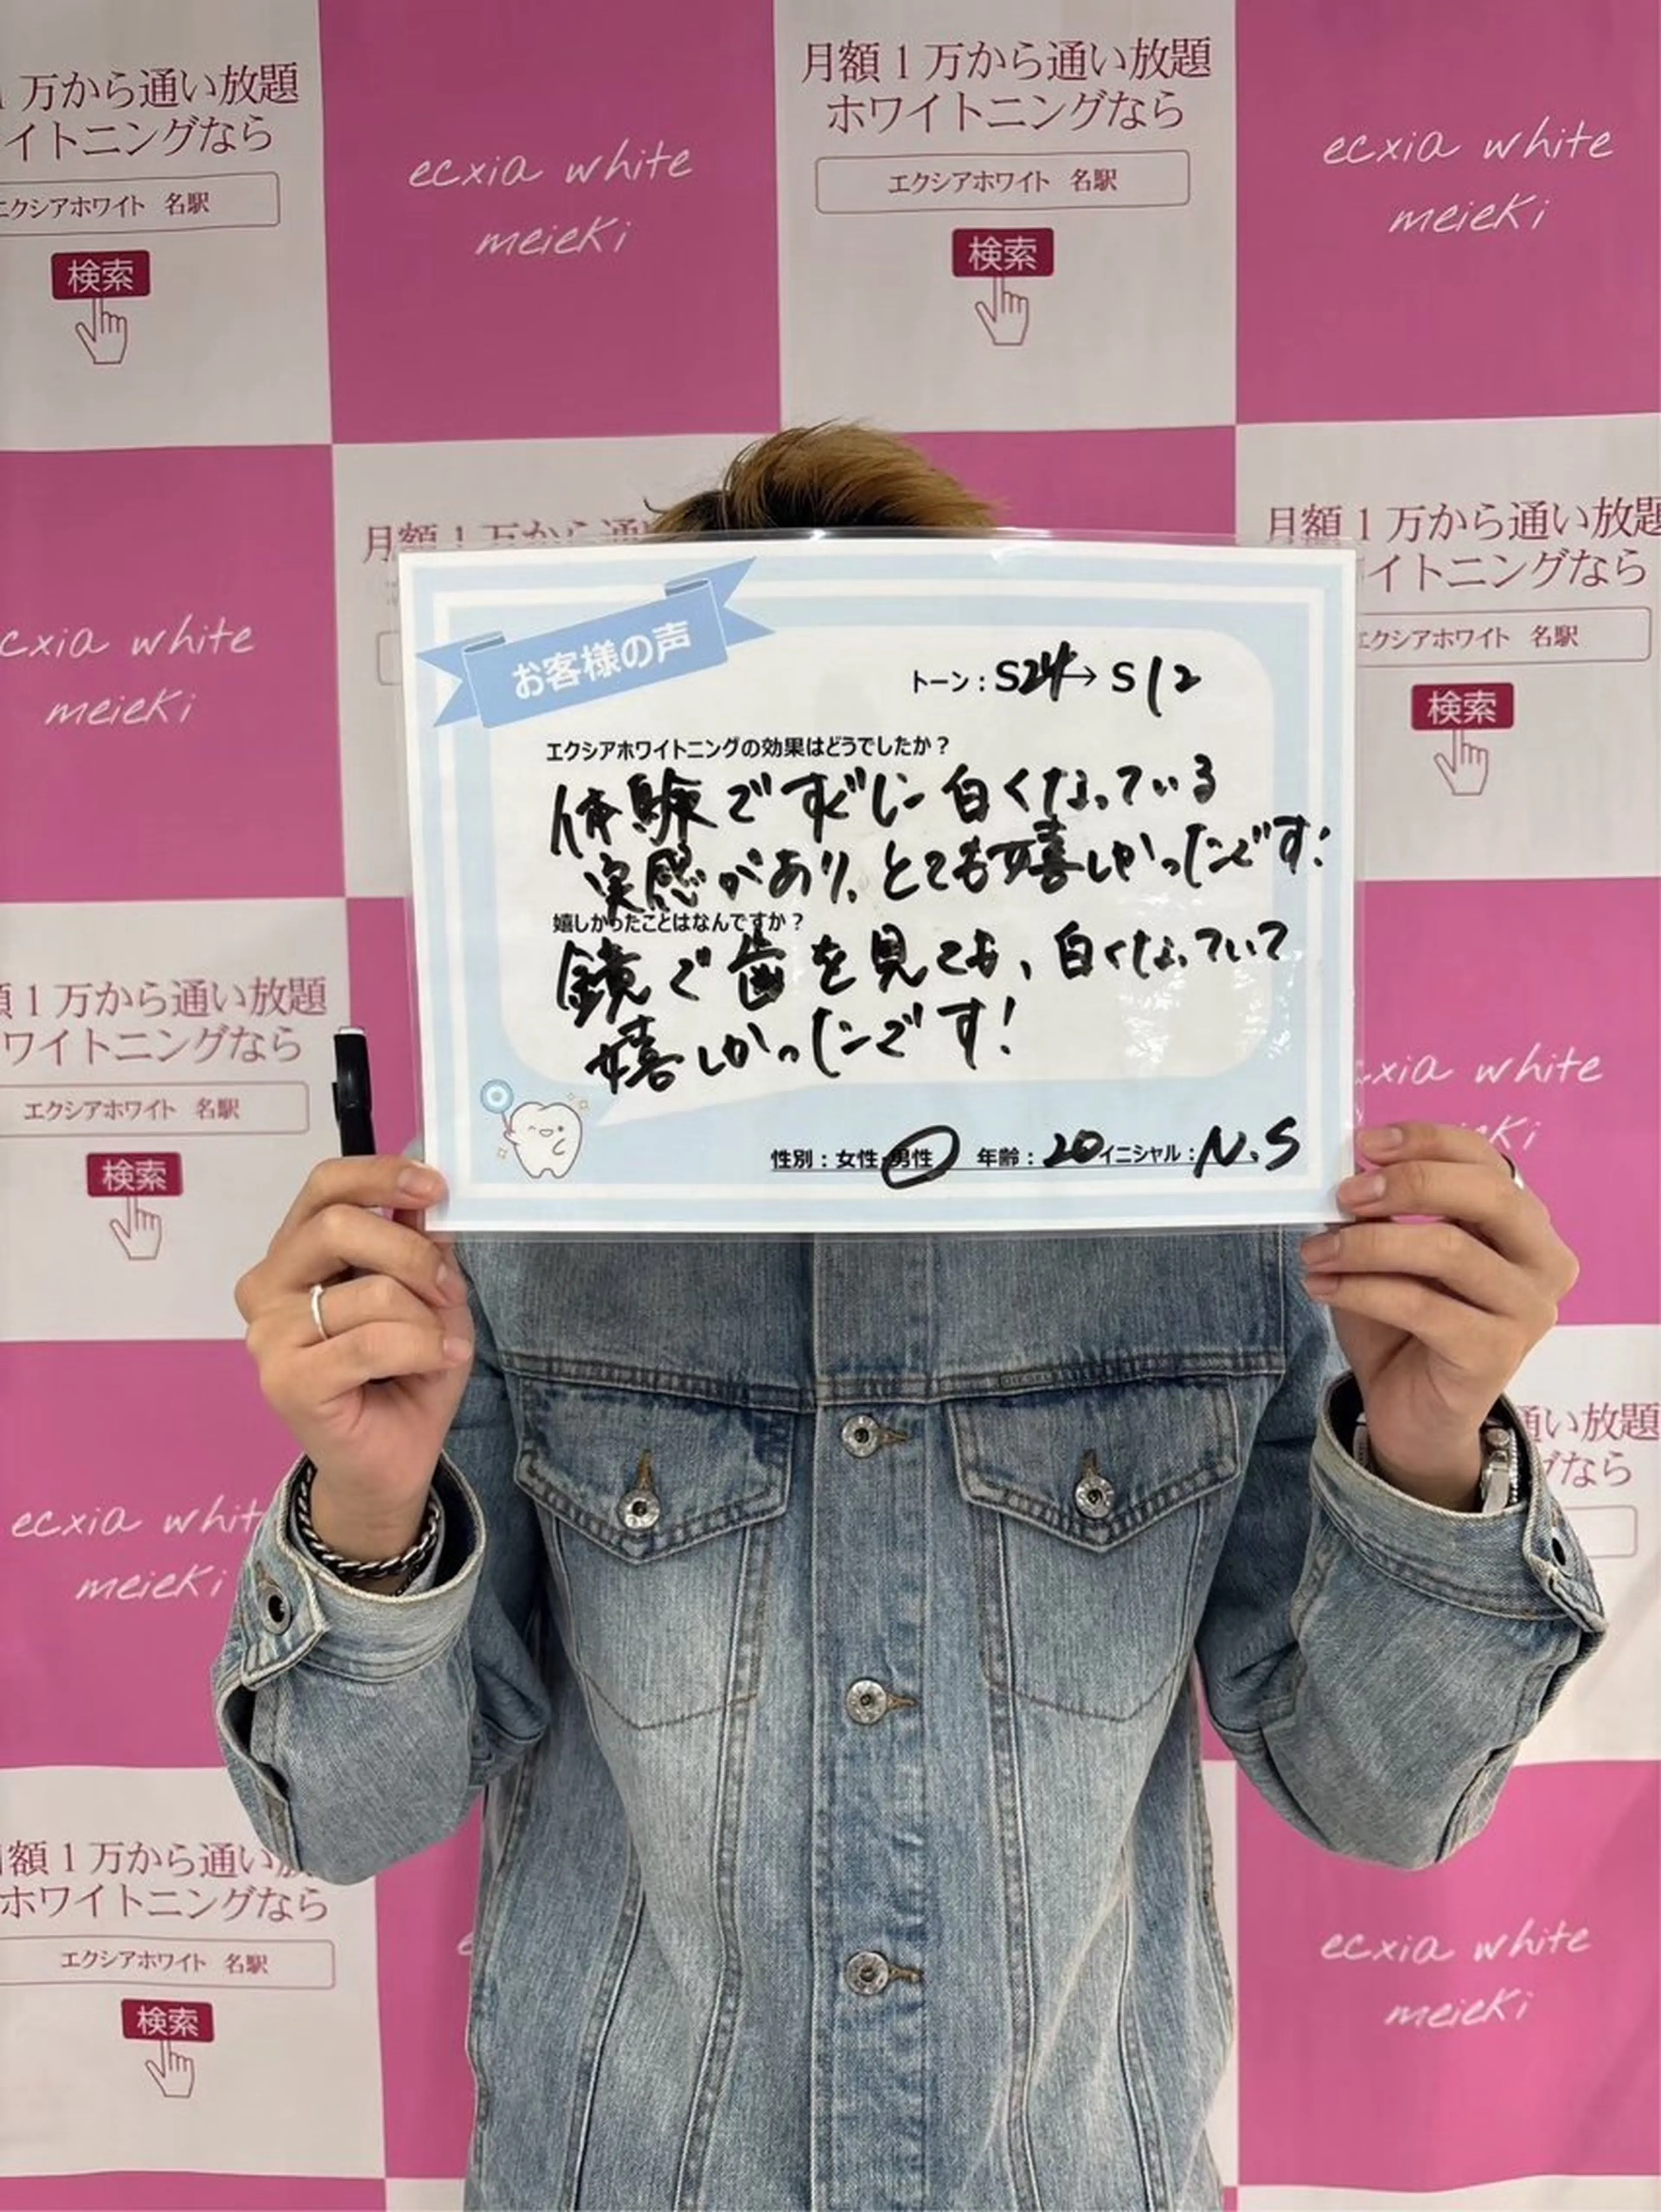 1万から通い放題
イトニングなら
エクシアホワイト 名駅
検索
ecxia white
meieki
月額1万から通い放題
ホワイトニングなら
エクシアホワイト 名駅
検索
ecxia white
meieki
cxia white
meieki
月額1万から通
月額1万から通い放題
イトニングなら
エクシアホワイト 名駅
検索
お客様の声
トーン:S24→S12
エクシアホワイトニングの効果はどうでしたか?
体験ですぐに白くなっている
実感があり、とても嬉しかったです!
嬉しかったことはなんですか?
鏡で歯を見ても、白くなっていて
嬉しかったです!
性別:女性・男性 年齢:20 イニシャル:N.S
額1万から通い放題
ワイトニングなら
エクシアホワイト 名駅
検索
xia white
eki
DIESEL
ecxia whit
meieki
通い放題
グなら
額1万から通い放
ホワイトニングなら
エクシアホワイト 名駅
検索
e
ecxia white
meieki